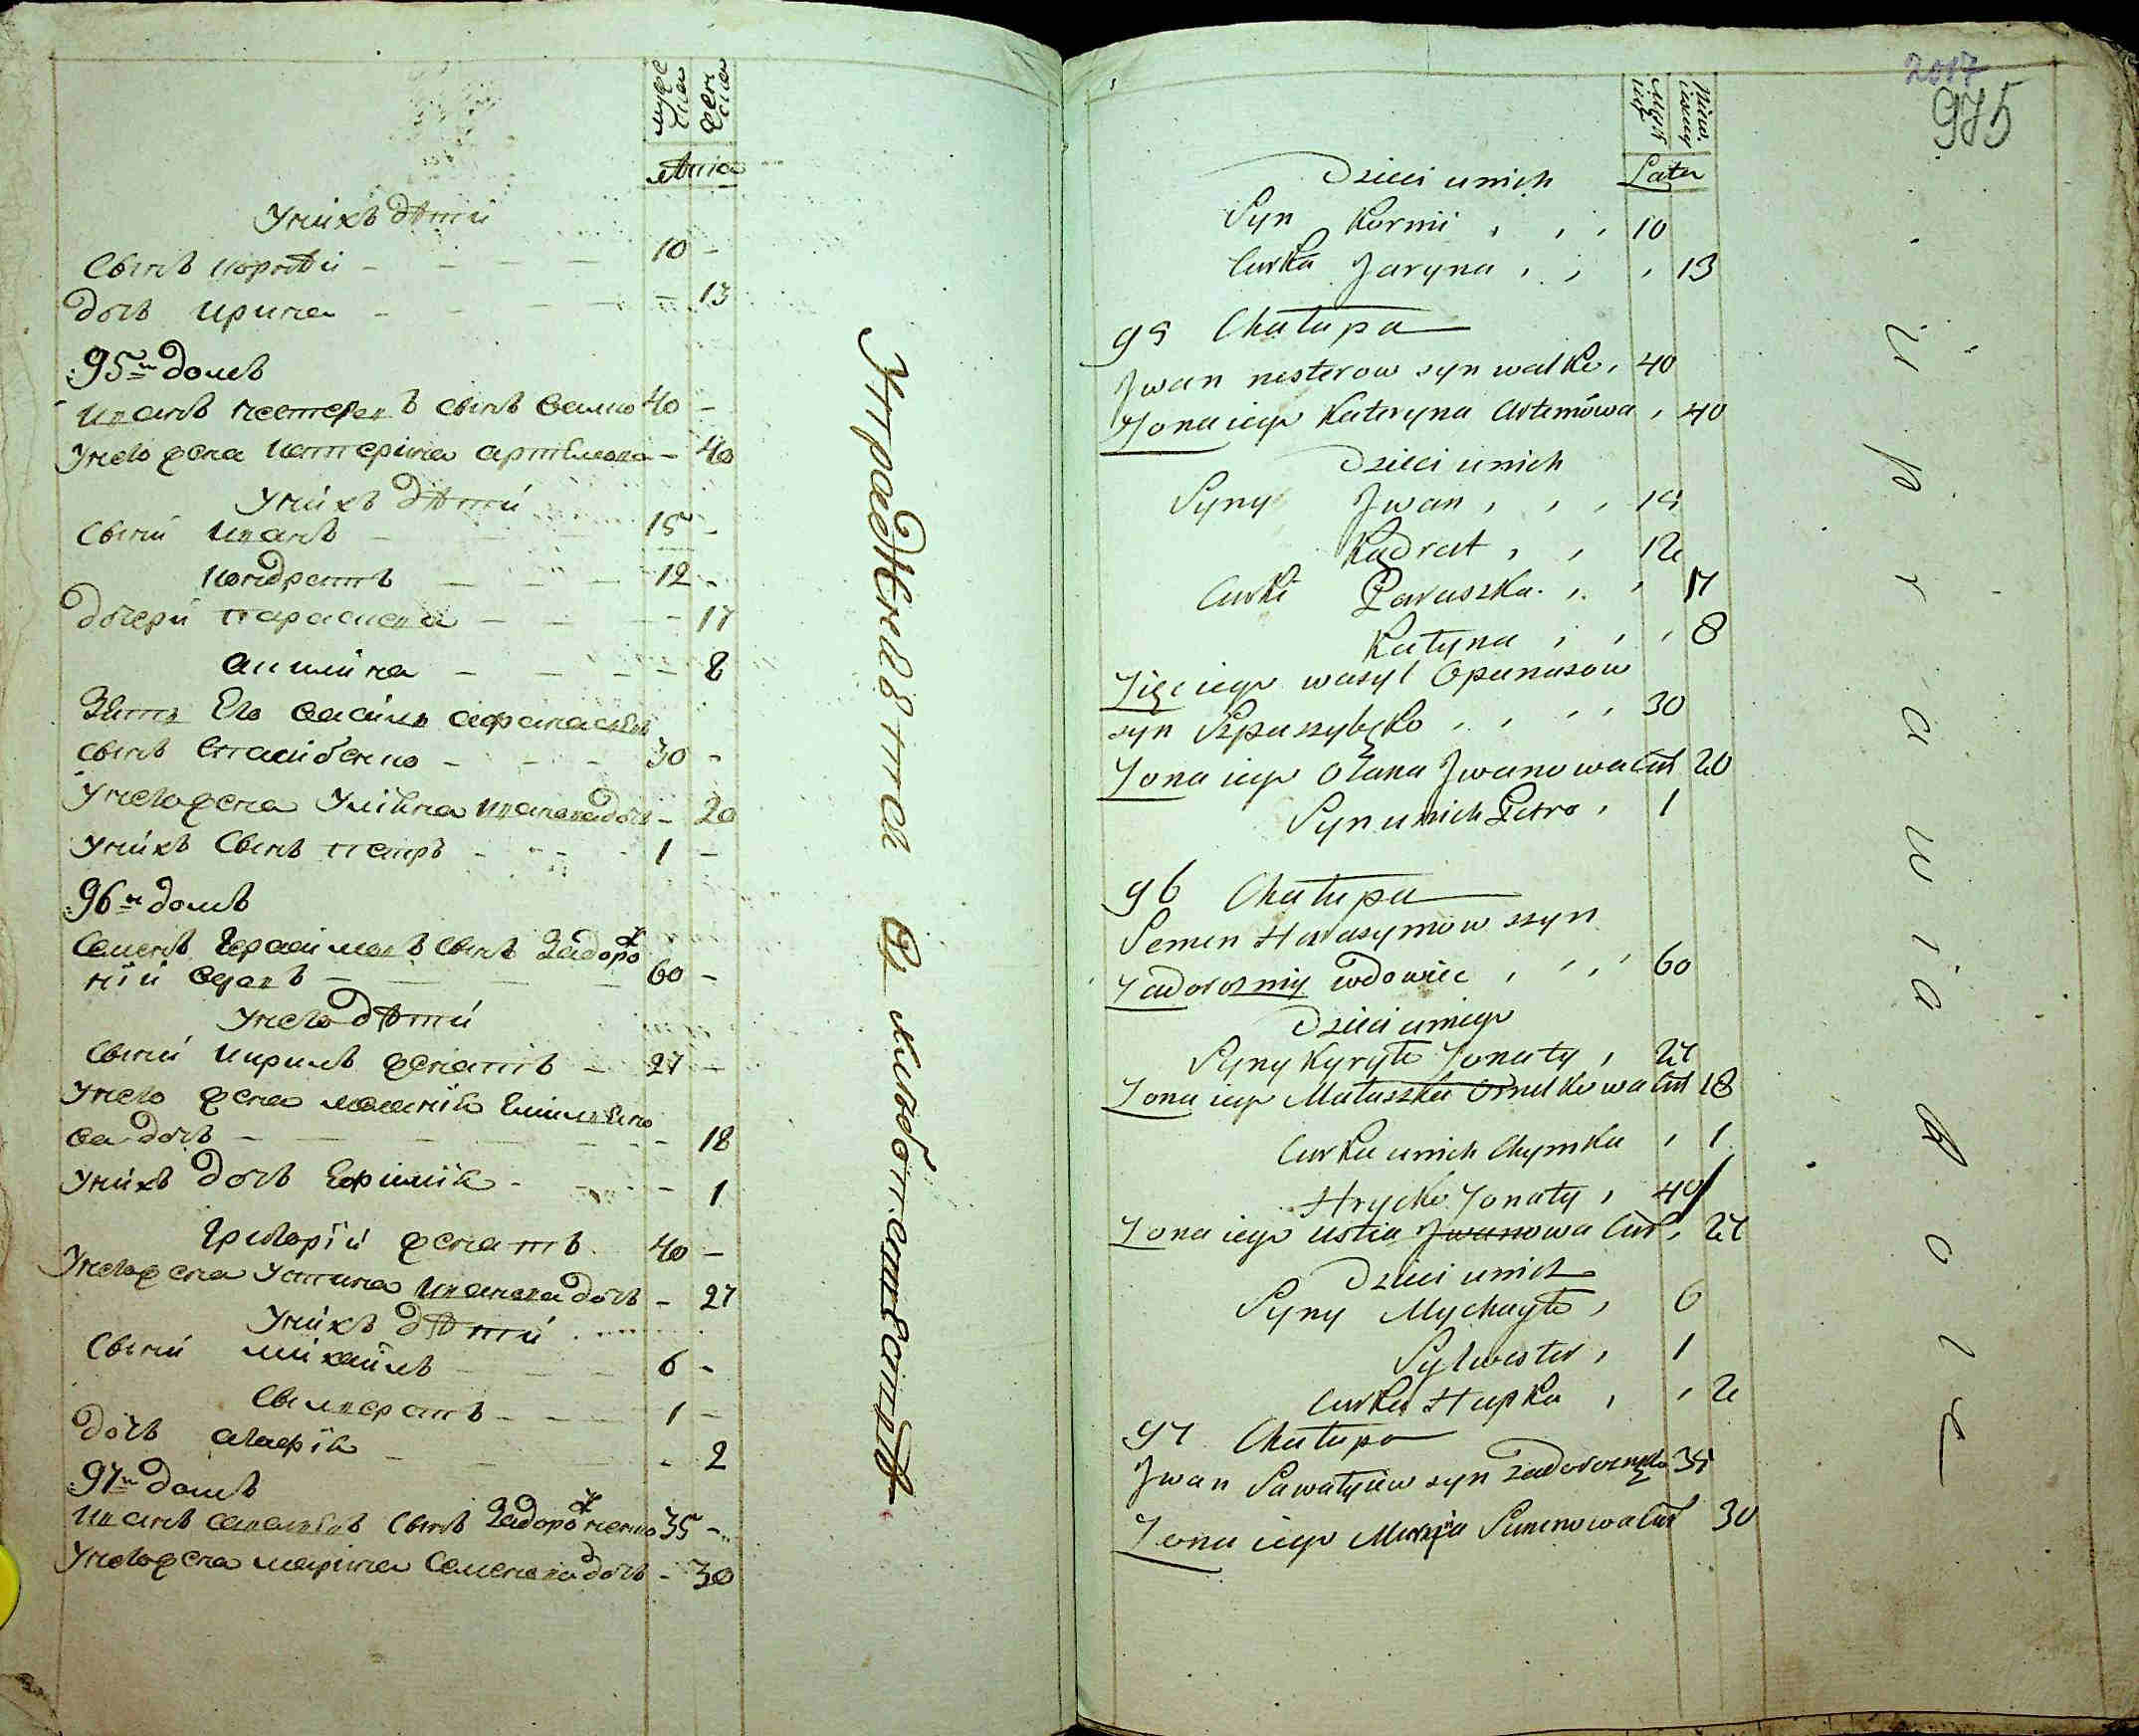 мужеска
женска
лѣта
У нихъ дѣти
Сынъ корнѣй 10 -
дочь ирина - 13
95й домъ
иванъ нестеровъ сынъ валко 40 -
У него жена катерина артемова - 40
У нихъ дѣти
Сыны иванъ 15 -
кондратъ 12 -
дочери параскева - 17
акилина - 8
Зять Его василь афанасьевъ
сынъ 30 -
У него жена Улияна иванова дочь - 20
У нихъ Сынъ петръ 1 -
96й домъ
Семенъ Герасимовъ сынъ Задорож
ній вдовъ 60 -
У него дѣти
Сыны кирилъ женатъ 27 -
У него жена меланія
ва дочь - 18
У нихъ дочь Ефимія - 1
Григорій женатъ 40 -
У него жена Устина иванова дочь - 27
У нихъ дѣти
Сыны михайлъ 6 -
Силвестръ 1 -
дочь агафія - 2
97й домъ
иванъ саватѣевъ сынъ Задорожненко 35 -
У него жена марина Семенова дочь - 30
Упражняется в хлебопашествѣ
2017
975
Lata
Dzieci u nich
Syn Kornii 10
Curka Jaryna 13
95 Chałupa
Jwan nesterow syn walko 40
Żona iego Kateryna Artemowa 40
Dzieci u nich
Syny Jwan 15
Kądrat 12
Curki Paraszka 17
Katyna 8
Zięć iego wasyl Opanasow
syn 30
Żona iego Olana Jwanowa Cur 20
Syn u nich Petro 1
96 Chałupa
Semen Harasymow syn
Zadorożny wdowiec 60
Dzieci u niego
Syny Kyryło Żonaty 27
Żona iego Małaszka Omelkowa Cur 18
Curka u nich Chymka 1
Hrycko Żonaty 40
Żona iego Ustia Jwanowa Cur 27
Dzieci u nich
Syny Mychayło 6
Sylwester 1
Curka Hapka 2
97 Chałupa
Jwan Sawatyiew syn Zadorożenko 35
Żona iego Maryia Semenowa Cur 30
uprawia Role